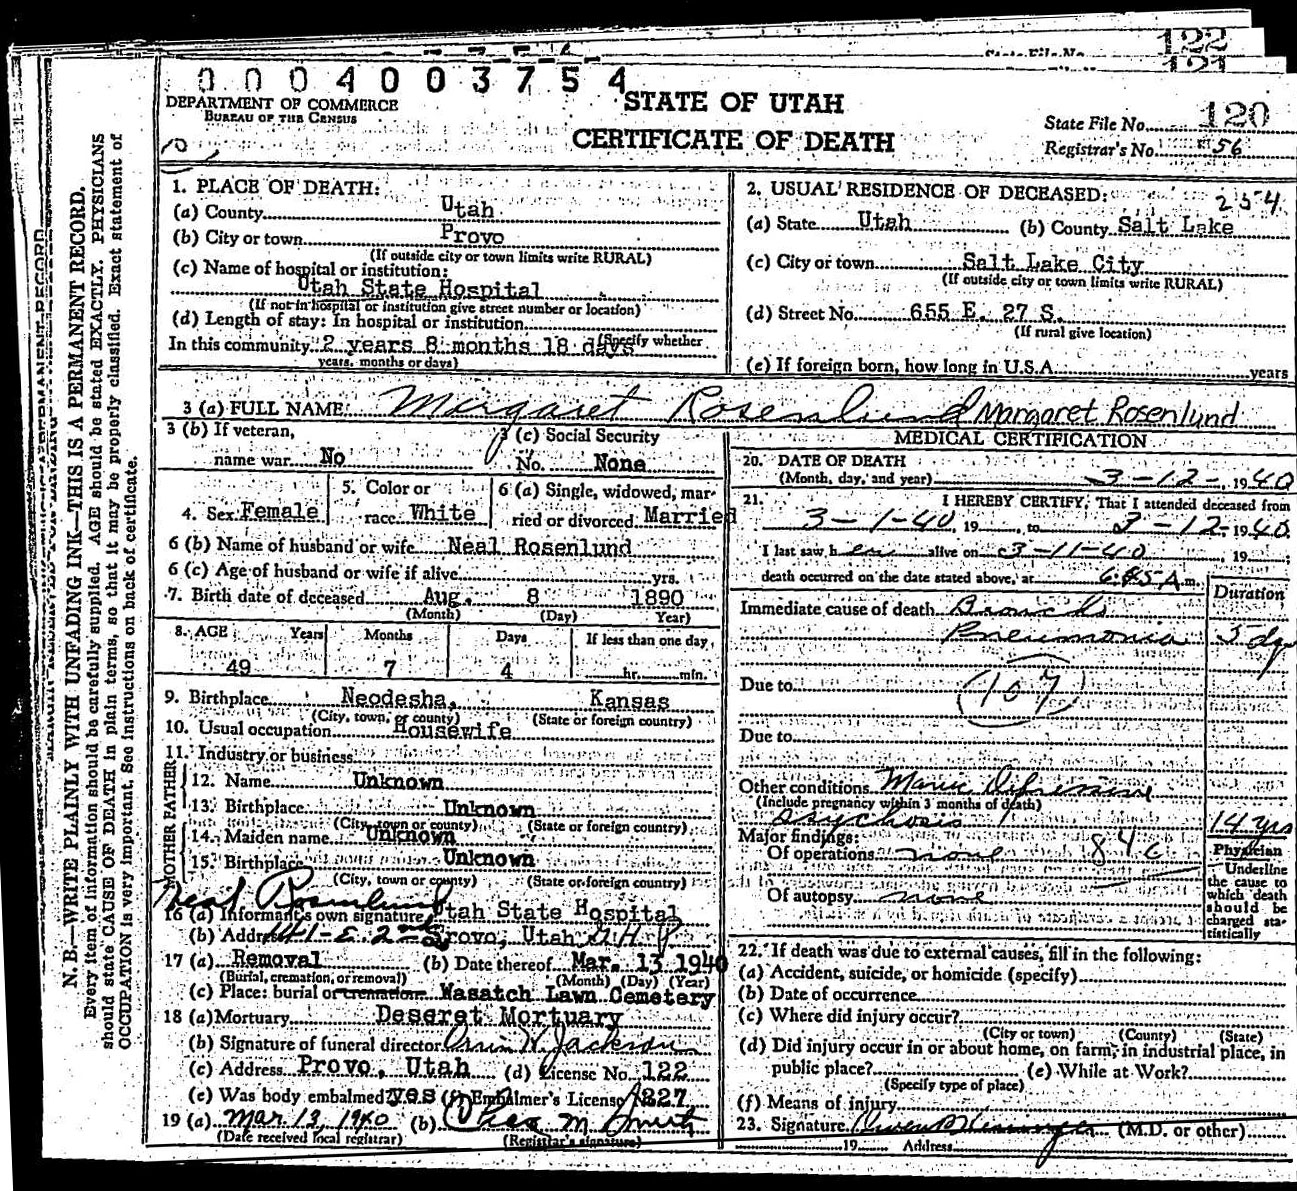 122
State File No.
121
0 0 0 4 0 0 3 7 5 4
DEPARTMENT OF COMMERCE
BUREAU OF THE CENSUS
STATE OF UTAH
CERTIFICATE OF DEATH
State File No. 120
Registrar's No. 56
10
N. B.—WRITE PLAINLY WITH UNFADING INK—THIS IS A PERMANENT RECORD.
Every item of information should be carefully supplied. AGE should be stated EXACTLY. PHYSICIANS
should state CAUSE OF DEATH in plain terms, so that it may be properly classified. Exact statement of
OCCUPATION is very important. See instructions on back of certificate.
1. PLACE OF DEATH:
(a) County Utah
(b) City or town Provo
(If outside city or town limits write RURAL)
(c) Name of hospital or institution:
Utah State Hospital
(If not in hospital or institution give street number or location)
(d) Length of stay: In hospital or institution
(Specify whether
In this community 2 years 8 months 18 days
years, months or days)
2. USUAL RESIDENCE OF DECEASED:
254
(a) State Utah (b) County Salt Lake
(c) City or town Salt Lake City
(If outside city or town limits write RURAL)
(d) Street No. 655 E. 27 S.
(If rural give location)
(e) If foreign born, how long in U.S.A. years
3 (a) FULL NAME Margaret Rosenlund Margaret Rosenlund
3 (b) If veteran,
name war No
3 (c) Social Security
No. None
4. Sex Female
5. Color or
race White
6 (a) Single, widowed, mar-
ried or divorced Married
6 (b) Name of husband or wife Neal Rosenlund
6 (c) Age of husband or wife if alive yrs.
7. Birth date of deceased Aug. 8 1890
(Month) (Day) Year)
8. AGE Years Months Days If less than one day
49 7 4 hr. min.
9. Birthplace Neodesha, Kansas
(City, town, or county) (State or foreign country)
10. Usual occupation Housewife
11. Industry or business
FATHER
12. Name Unknown
13. Birthplace Unknown
(City, town or county) (State or foreign country)
MOTHER
14. Maiden name Unknown
15. Birthplace Unknown
(City, town or county) (State or foreign country)
Neal Rosenlund
16 (a) Informant's own signature Utah State Hospital
(b) Address 141-E. 2nd Provo, Utah
17 (a) Removal (b) Date thereof Mar. 13 1940
(Burial, cremation, or removal) (Month) (Day) (Year)
(c) Place: burial or cremation Wasatch Lawn Cemetery
18 (a) Mortuary Deseret Mortuary
(b) Signature of funeral director Orrin W. Jackson
(c) Address Provo, Utah (d) License No. 122
(e) Was body embalmed? yes (f) Embalmer's License 227
19 (a) Mar 13, 1940 (b) M. Smith
(Date received local registrar) (Registrar's signature)
MEDICAL CERTIFICATION
20. DATE OF DEATH
(Month, day, and year) 3-12-, 1940
21. I HEREBY CERTIFY, That I attended deceased from
3-1-40, 19 , to 3-12-1940.
I last saw h er alive on 3-11-40 19 ;
death occurred on the date stated above, at 6:45 A.m.
Duration
Immediate cause of death Bronicho
Pneumonia 5 dys
Due to (107)
Due to
Other conditions Manic Depressive
(Include pregnancy within 3 months of death)
psychosis 14 yrs
Major findings:
Of operations none 84c
Of autopsy none
Physician
Underline
the cause to
which death
should be
charged sta-
tistically
22. If death was due to external causes, fill in the following:
(a) Accident, suicide, or homicide (specify)
(b) Date of occurrence
(c) Where did injury occur?
(City or town) (County) (State)
(d) Did injury occur in or about home, on farm, in industrial place, in
public place? (e) While at Work?
(Specify type of place)
(f) Means of injury
23. Signature Owen (M.D. or other)
19 Address